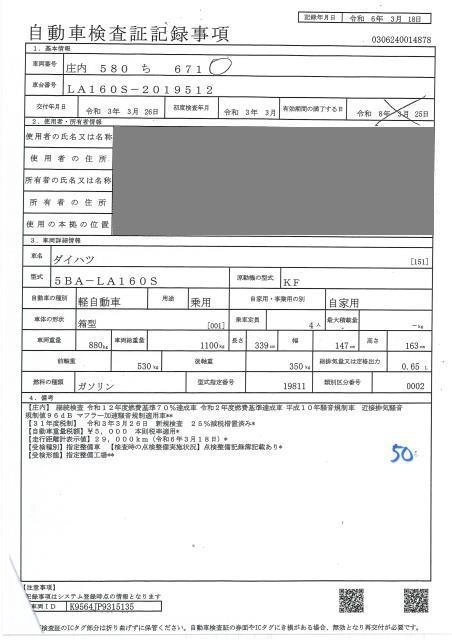 記録年月日 令和 6年 3月 18日
自動車検査証記録事項
0306240014878
1．基本情報
車両番号 庄内 580 ち 671
車台番号 LA160S-2019512
交付年月日 令和 3年 3月 26日 初度検査年月 令和 3年 3月 有効期間の満了する日 令和 8年 3月 25日
2．使用者・所有者情報
使用者の氏名又は名称
使用者の住所
所有者の氏名又は名称
所有者の住所
使用の本拠の位置
3．車両詳細情報
車名 ダイハツ [151]
型式 5BA-LA160S 原動機の型式 KF
自動車の種別 軽自動車 用途 乗用 自家用・事業用の別 自家用
車体の形状 箱型 [001] 乗車定員 4人 最大積載量 -kg
車両重量 880kg 車両総重量 1100kg 長さ 339cm 幅 147cm 高さ 163cm
前軸重 530kg 後軸重 350kg 総排気量又は定格出力 0.65 L
燃料の種類 ガソリン 型式指定番号 19811 類別区分番号 0002
4．備考
【庄内】 継続検査 令和12年度燃費基準70％達成車 令和2年度燃費基準達成車 平成10年騒音規制車 近接排気騒音
規制値96dB マフラー加速騒音規制適用車**
【31年度税制】 令和3年3月26日 新規検査 25％減税措置済み*
【自動車重量税額】￥5,000 本則税率適用*
【走行距離計表示値】29,000km（令和6年3月18日）*
【受検種別】指定整備車 【検査時の点検整備実施状況】点検整備記録簿記載あり*
【受検形態】指定整備工場**
50
【注意事項】
記録事項はシステム登録時点の情報となります
車両ID K9564JP9315135
検査証のICタグ部分は折り曲げずに保管ください。自動車検査証の券面やICタグにき損がある場合、無効となり再交付が必要です。